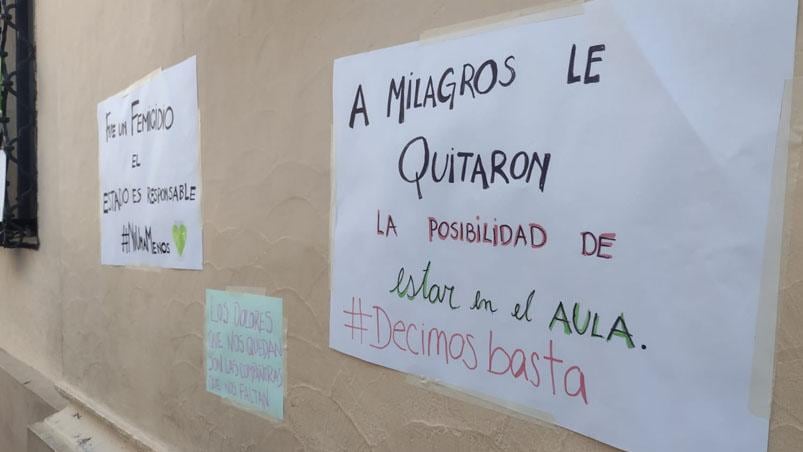 FUE UN FEMICIDIO
EL
ESTADO ES RESPONSABLE
#NiUNAMENOS
LOS DOLORES
QUE NOS QUEDAN
SON LAS COMPAÑERAS
QUE NOS FALTAN
A MILAGROS LE
QUITARON
LA POSIBILIDAD DE
estar en el AULA.
#Decimos basta